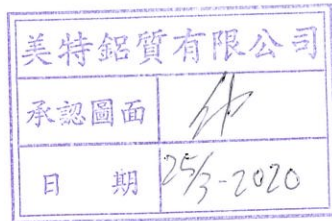 美特鋁質有限公司
承認圖面
日 期 25/3-2020